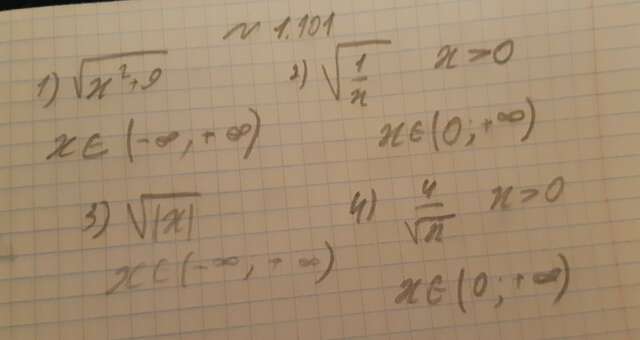 N 1.101
1) √(x²+9)
2) √(1/x) x>0
x∈(-∞,+∞)
x∈(0;+∞)
3) √|x|
4) 4/√x x>0
x∈(-∞;+∞)
x∈(0;+∞)